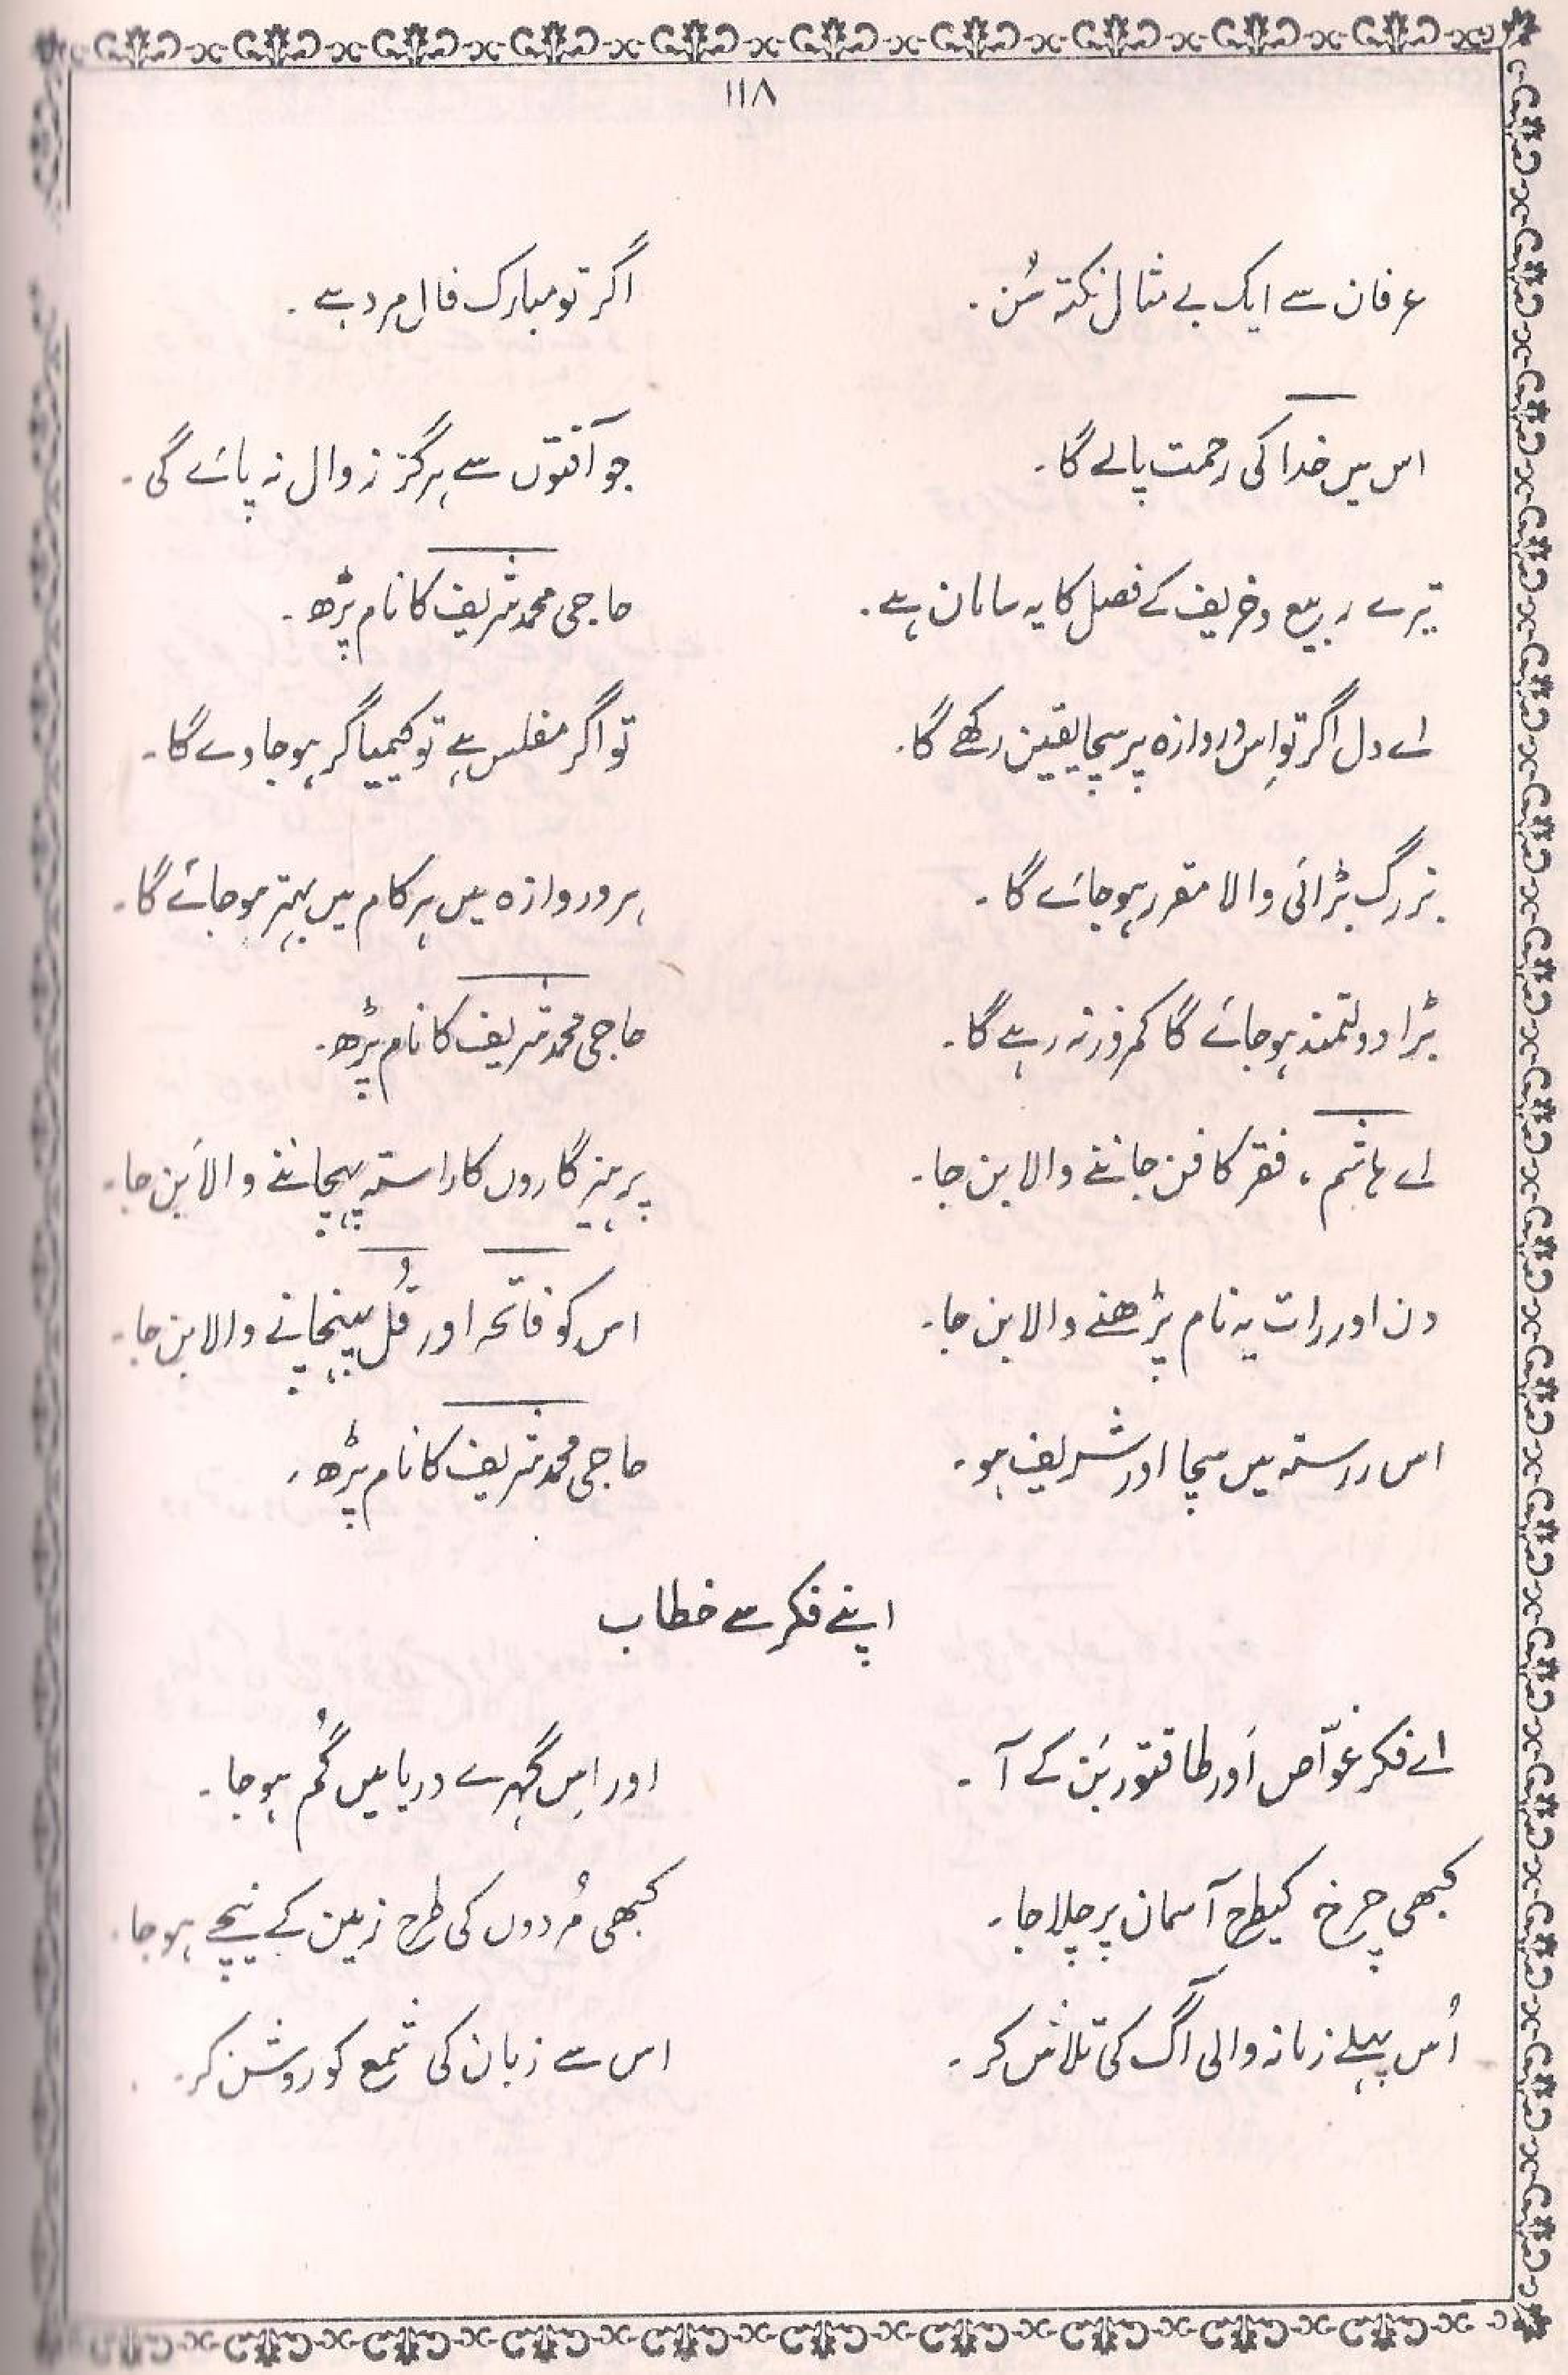 ۱۱۸
عرفان سے ایک بے مثال نکتہ سُن۔ اگر تو مبارک فال مرد ہے۔
اس میں خدا کی رحمت پالے گا۔ جو آفتوں سے ہرگز زوال نہ پائے گی۔
تیرے ربیع و خریف کے فصل کا یہ سامان ہے۔ حاجی محمد شریف کا نام پڑھ۔
اے دل اگر تو اِس دروازہ پر سچا یقین رکھے گا۔ تو اگر مفلس ہے تو کیمیا گر ہو جاوے گا۔
بزرگ بڑائی والا مقرر ہو جائے گا۔ ہر دروازہ میں ہر کام میں بہتر ہو جائے گا۔
بڑا دولتمند ہو جائے گا کمزور نہ رہے گا۔ حاجی محمد شریف کا نام پڑھ۔
اے ہاشم، فقر کا فن جاننے والا بن جا۔ پرہیزگاروں کا راستہ پہچاننے والا بَن جا۔
دن اور رات یہ نام پڑھنے والا بن جا۔ اس کو فاتحہ اور قُل پہنچانے والا بن جا۔
اس رستہ میں سچا اور شریف ہو۔ حاجی محمد شریف کا نام پڑھ۔
اپنے فکر سے خطاب
اے فکر غوّاص اَور طاقتور بَن کے آ۔ اور اِس گہرے دریا میں گُم ہو جا۔
کبھی چرخ کیطرح آسمان پر چلا جا۔ کبھی مُردوں کی طرح زمین کے نیچے ہو جا۔
اُس پہلے زمانہ والی آگ کی تلاش کر۔ اس سے زبان کی شمع کو روشن کر۔